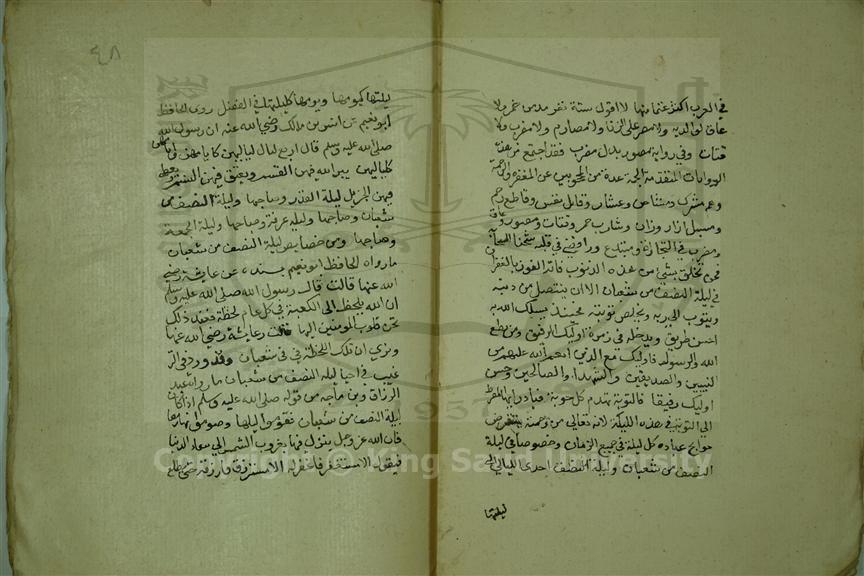 في العرب اكثر غنما منها لا اقول ستة نفر مدمن خمر ولا
عاق لوالديه ولا مصر على الزنا ولا مصارم ولا مضرب ولا
قتات وفي رواية مصور بدل مضرب فقد اجتمع من هذه
الروايات المتقدمة عدة من المحرومين عن المغفرة والرحمة
وهم مشرك ومشاحن وعشار وقاتل نفس وقاطع رحم
ومسبل ازار وزان وشارب خمر وقتات ومصور وعاق
ومضرب في التجارة ومبتدع ورافضي في قلبه شحنا للصحابة
فمن تخلق بشيء من هذه الذنوب فاته الفوز بالغفران
في ليلة النصف من شعبان الا ان يتنصل من ذنبه
ويتوب الى ربه ويخلص توبته فحينئذ يسلك الله به
احسن طريق ويدخله في زمرة اوليك الرفيق ومن يطع
الله والرسول فاوليك مع الذين انعم الله عليهم من
النبيين والصديقين والشهدا والصالحين وحسن
اوليك رفيقا فالتوبة تهدم كل حوبة فبادر ايها المفرط
الى التوبة في هذه الليلة لانه تعالى من رحمته يتعرض
حوايج عباده كل ليلة في جميع الزمان وخصوصا في ليلة
النصف من شعبان وليلة النصف احدى الليالي التي
ليلتها
٤٨
ليلتها كيومها ويومها كليلتها في الفضل روى الحافظ
ابو نعيم عن انس بن مالك رضي الله عنه ان رسول الله
صلى الله عليه وسلم قال اربع ليال لياليهن كايامهن وايامهن
كلياليهن يبر الله فيهن القسم ويعتق فيهن النسم ويعطي
فيهن الجزيل ليلة القدر وصباحها وليلة النصف من
شعبان وصباحها وليلة عرفة وصباحها وليلة الجمعة
وصباحها ومن خصايص ليلة النصف من شعبان
ما رواه الحافظ ابو نعيم بسنده عن عايشة رضي
الله عنها قالت قال رسول الله صلى الله عليه وسلم
ان الله يلحظ الى الكعبة في كل عام لحظة فعند ذلك
تحن قلوب المومنين اليها قالت عايشة رضي الله عنها
ونرى ان تلك اللحظة في شعبان وقد ورد في التر
غيب في احيا ليلة النصف من شعبان ما رواه عبد
الرزاق وبن ماجه من قوله صلى الله عليه وسلم اذا كان
ليلة النصف من شعبان فقوموا ليلها وصوموا نهارها
فان الله عز وجل ينزل فيها لغروب الشمس الى سماء الدنيا
فيقول الا مستغفر فاغفر له الا مسترزق فارزقه حتى يطلع
Copyright © King Saud University
1957